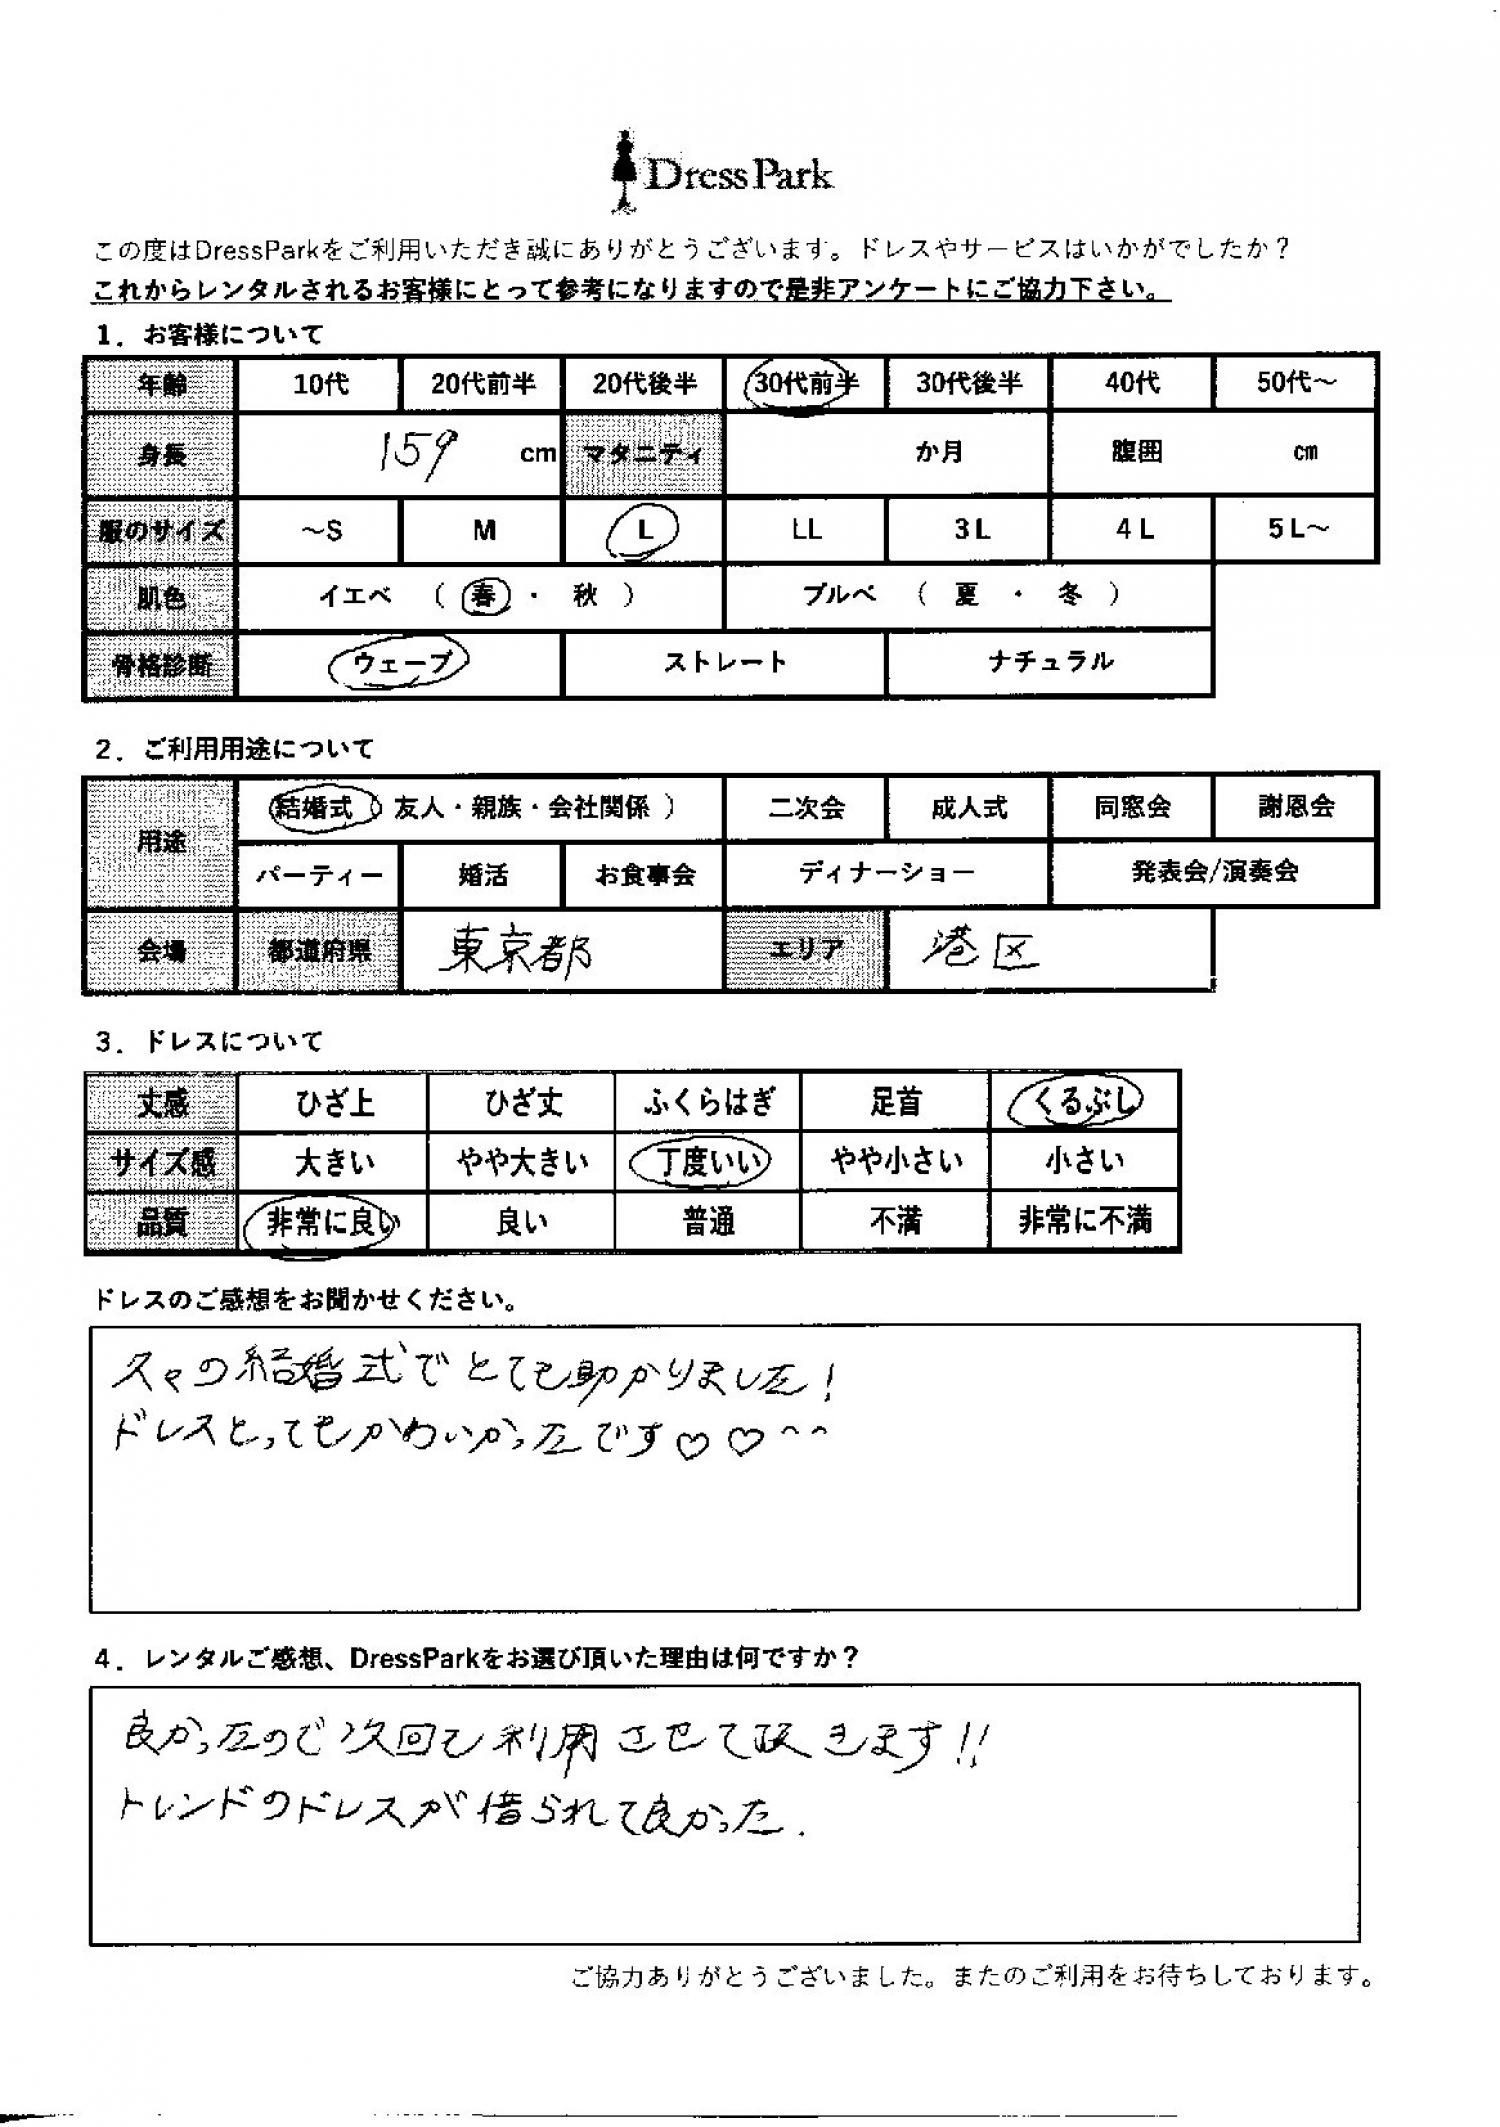 DressPark
この度はDressParkをご利用いただき誠にありがとうございます。ドレスやサービスはいかがでしたか？
これからレンタルされるお客様にとって参考になりますので是非アンケートにご協力下さい。
1．お客様について
年齢 10代 20代前半 20代後半 30代前半 30代後半 40代 50代～
身長 159 cm マタニティ か月 腹囲 cm
服のサイズ ～S M L LL 3L 4L 5L～
肌色 イエベ （ 春 ・ 秋 ） ブルベ （ 夏 ・ 冬 ）
骨格診断 ウェーブ ストレート ナチュラル
2．ご利用用途について
用途 結婚式（ 友人・親族・会社関係 ） 二次会 成人式 同窓会 謝恩会
パーティー 婚活 お食事会 ディナーショー 発表会/演奏会
会場 都道府県 東京都 エリア 港区
3．ドレスについて
丈感 ひざ上 ひざ丈 ふくらはぎ 足首 くるぶし
サイズ感 大きい やや大きい 丁度いい やや小さい 小さい
品質 非常に良い 良い 普通 不満 非常に不満
ドレスのご感想をお聞かせください。
久々の結婚式でとても助かりました！
ドレスとってもかわいかったです♡♡^^
4．レンタルご感想、DressParkをお選び頂いた理由は何ですか？
良かったので次回も利用させて頂きます!!
トレンドのドレスが借られて良かった.
ご協力ありがとうございました。またのご利用をお待ちしております。